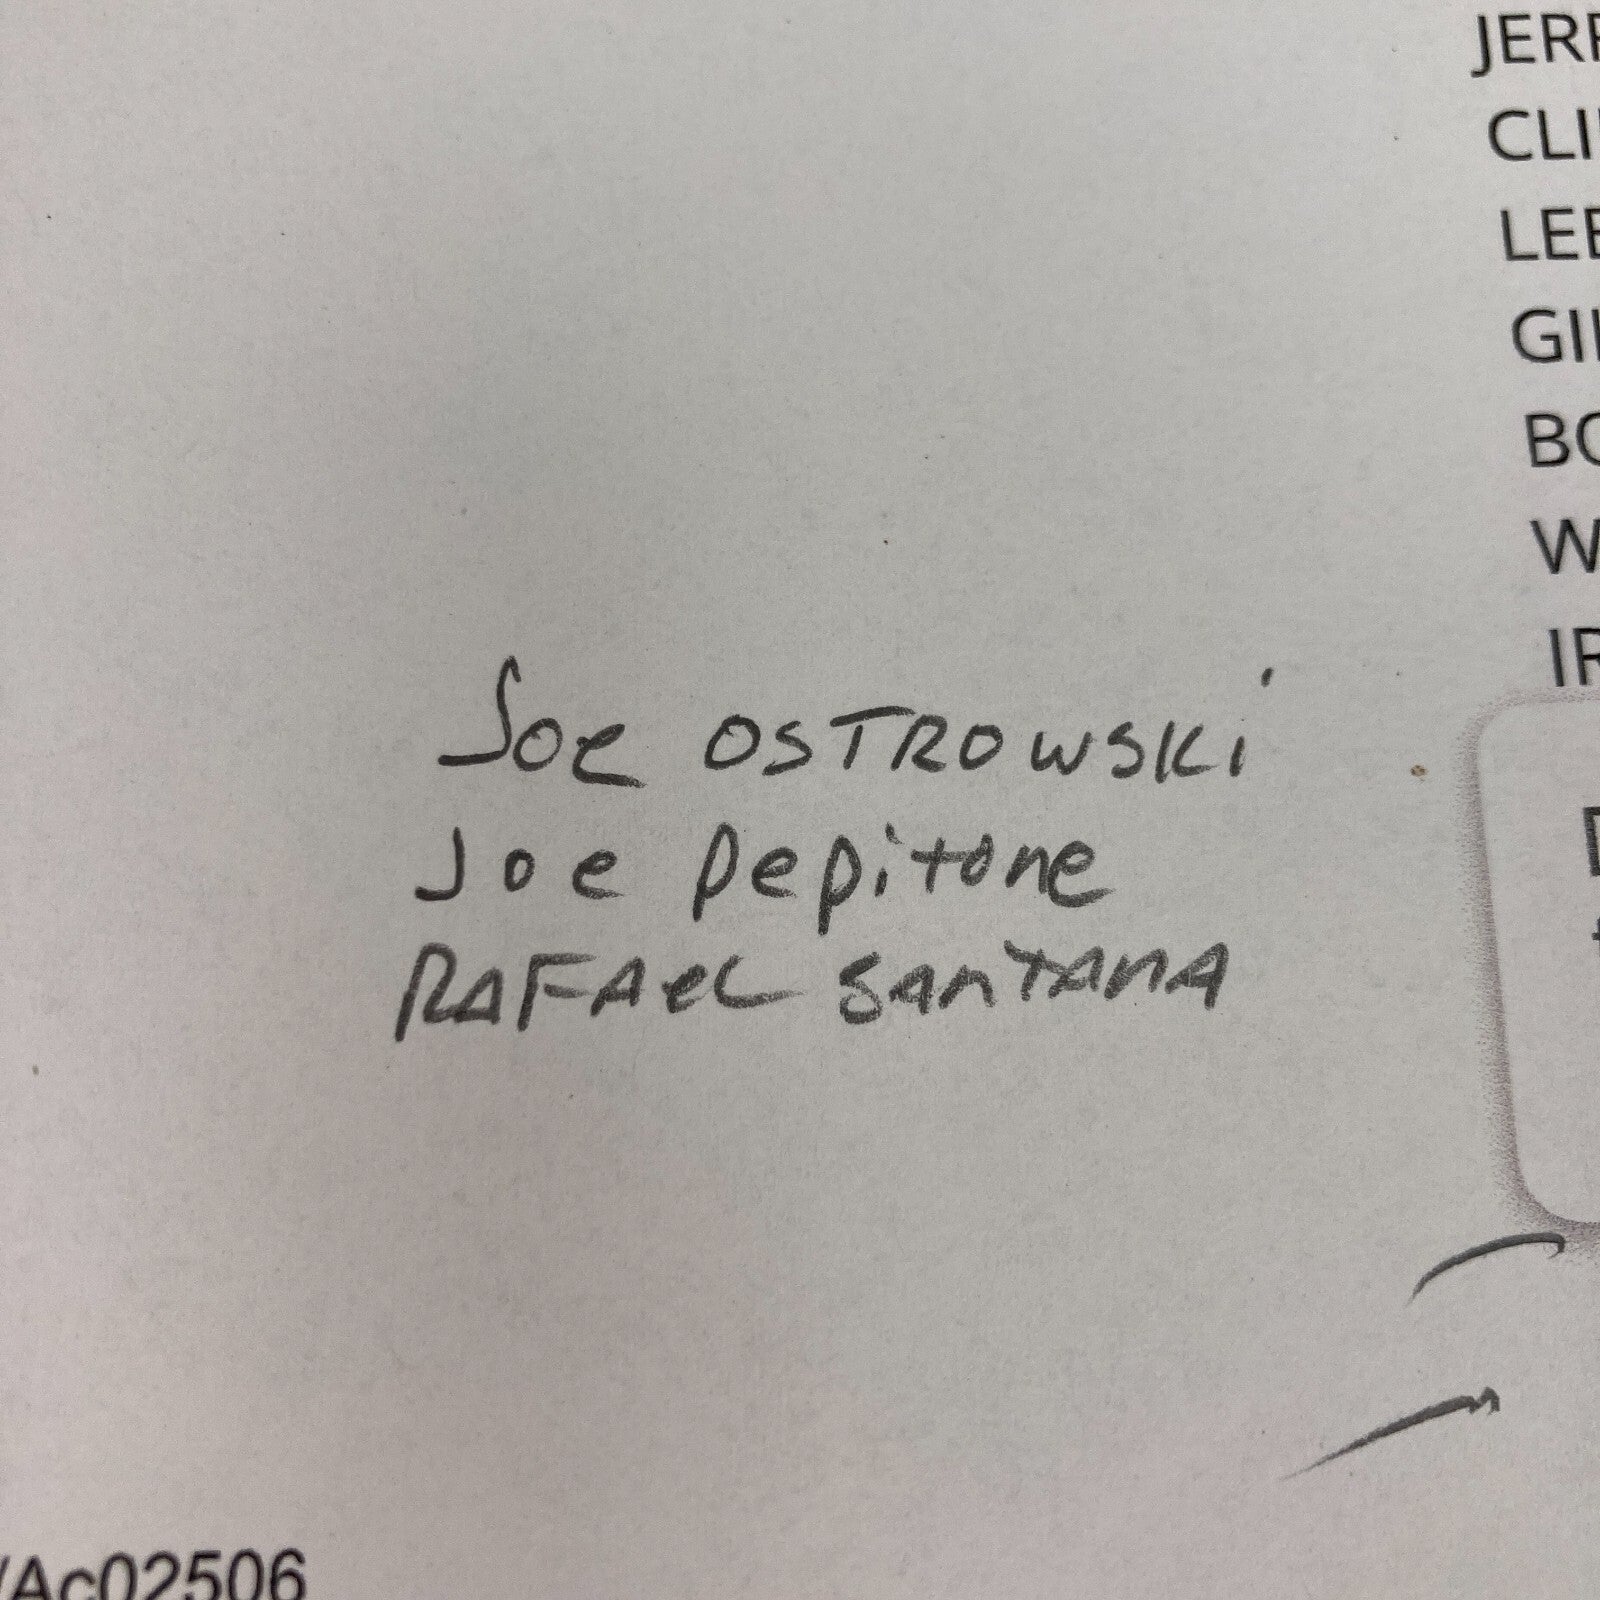 JERR
CLI
LEE
GI
BO
W
IR
Joe OSTROWSKi
Joe Pepitone
RAFAeL SANTANA
/Ac02506